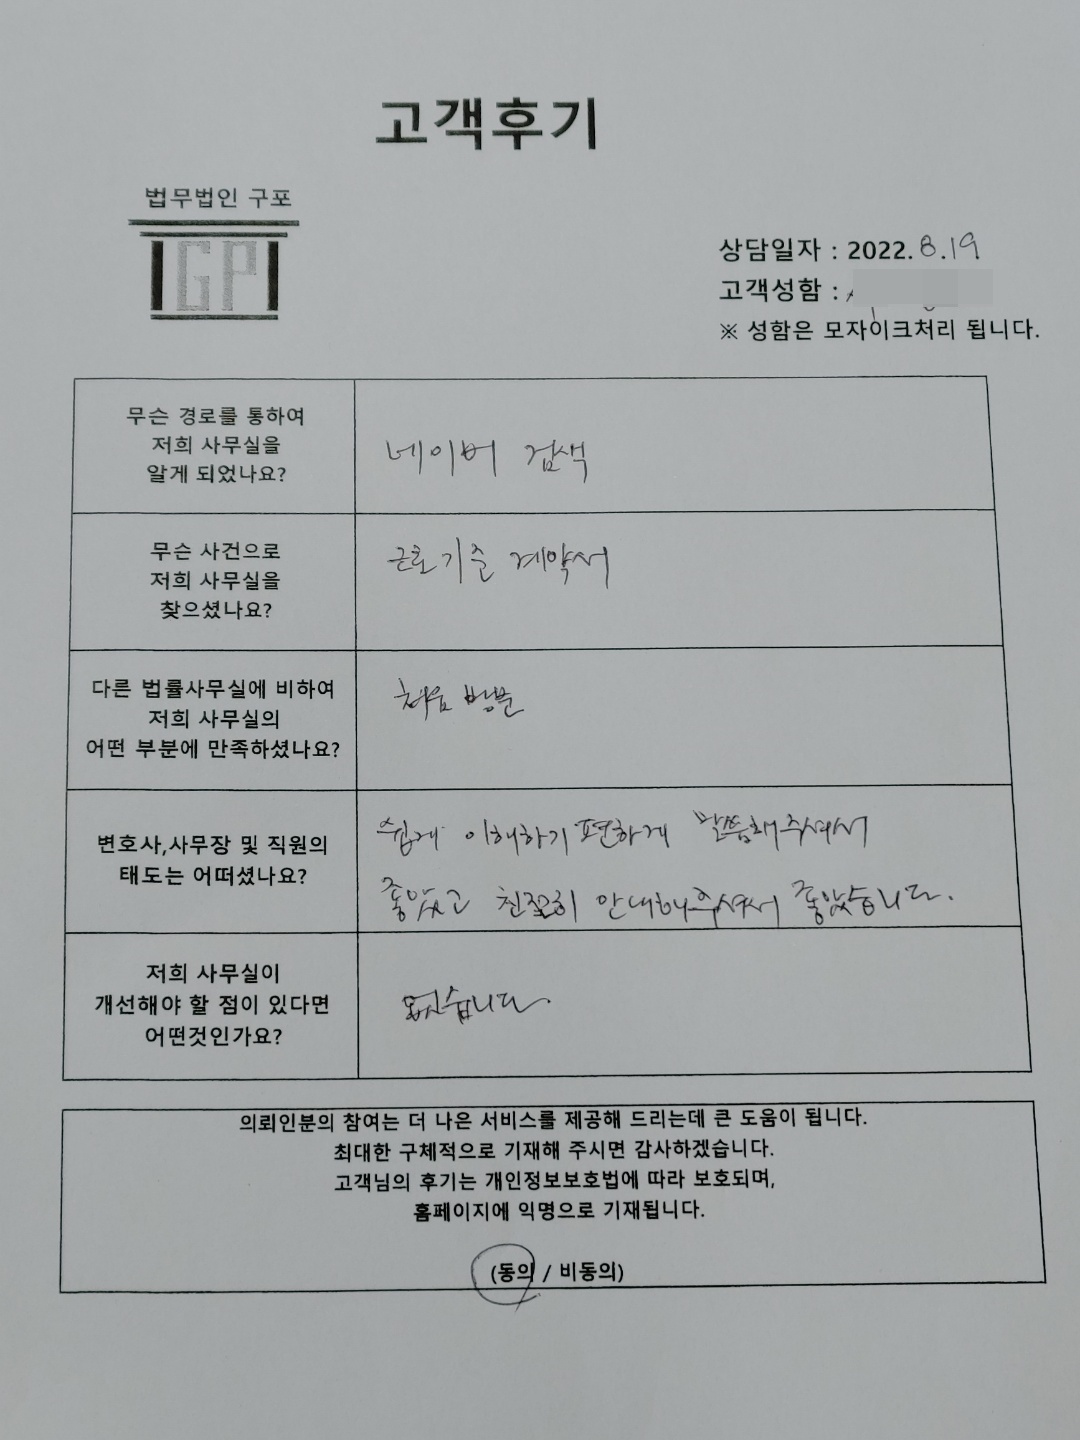 고객후기
법무법인 구포
GP
상담일자 : 2022. 8.19
고객성함 :
※ 성함은 모자이크처리 됩니다.
무슨 경로를 통하여
저희 사무실을
알게 되었나요?
네이버 검색
무슨 사건으로
저희 사무실을
찾으셨나요?
근로기준 계약서
다른 법률사무실에 비하여
저희 사무실의
어떤 부분에 만족하셨나요?
처음 방문
변호사,사무장 및 직원의
태도는 어떠셨나요?
쉽게 이해하기 편하게 말씀해주셔서
좋았고 친절히 안내해주셔서 좋았습니다.
저희 사무실이
개선해야 할 점이 있다면
어떤것인가요?
없습니다.
의뢰인분의 참여는 더 나은 서비스를 제공해 드리는데 큰 도움이 됩니다.
최대한 구체적으로 기재해 주시면 감사하겠습니다.
고객님의 후기는 개인정보보호법에 따라 보호되며,
홈페이지에 익명으로 기재됩니다.
(동의 / 비동의)